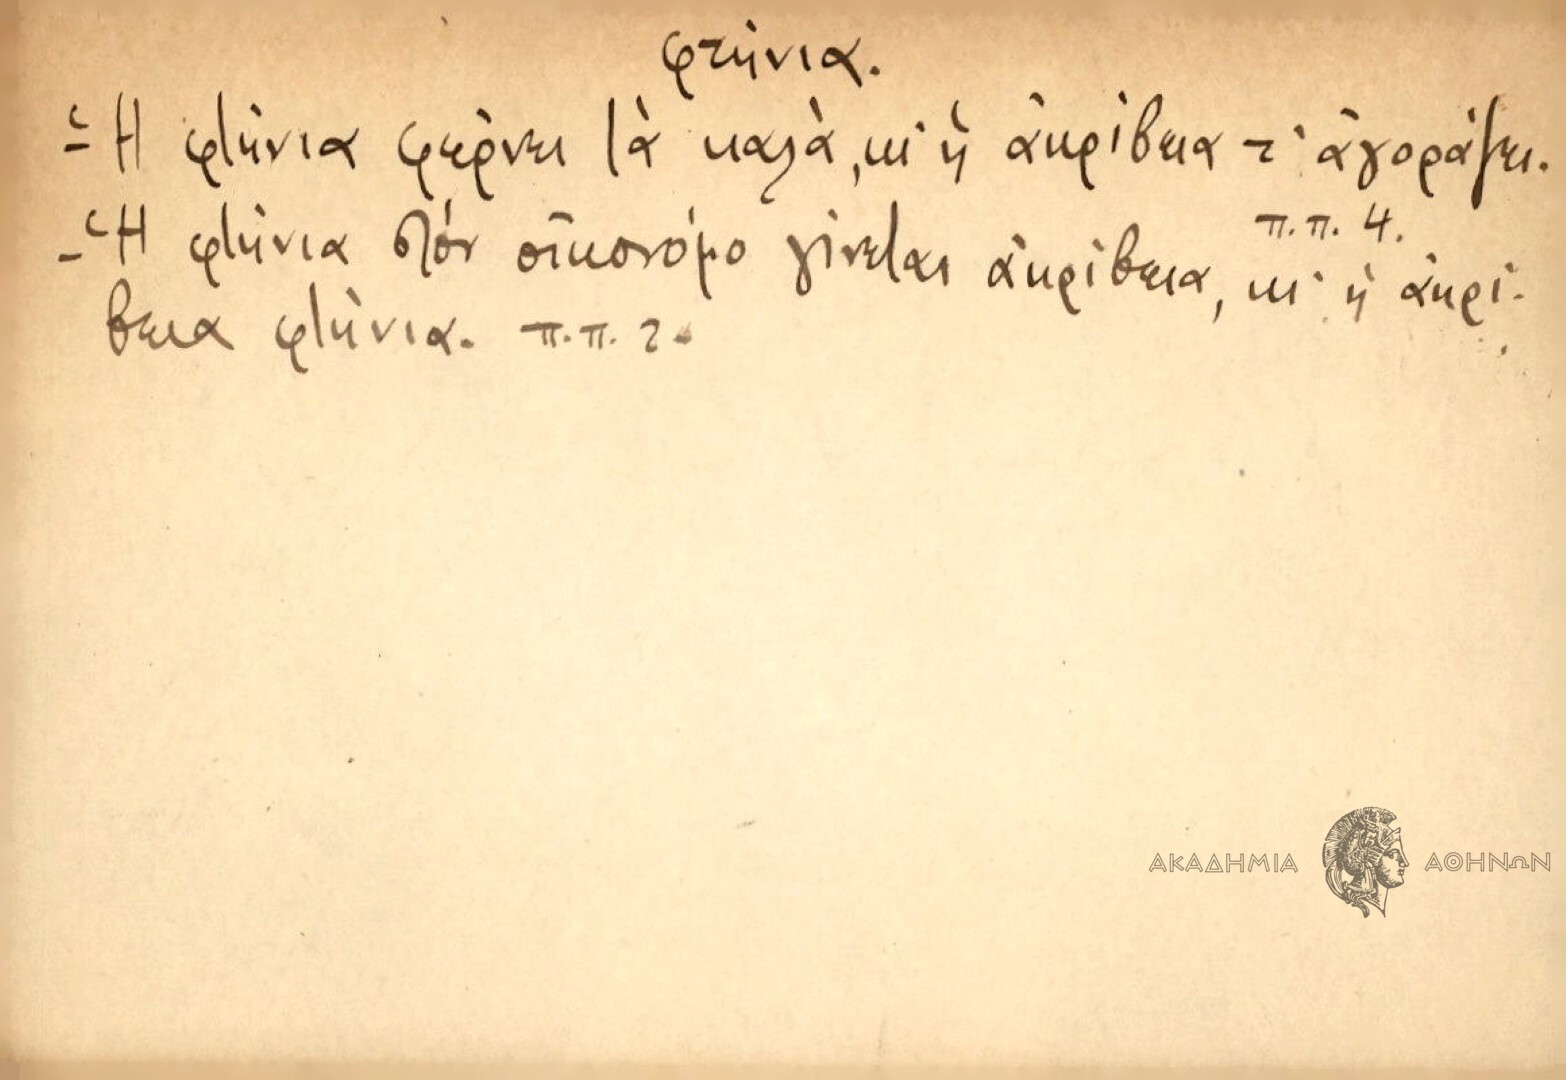 φτήνια.
- Ἡ φτήνια φέρνει τὰ καλά, κι' ἡ ἀκρίβεια τ' ἀγοράζει.
π.π. 4.
- Ἡ φτήνια στὸν οἰκονόμο γίνεται ἀκρίβεια, κι' ἡ ἀκρί-
βεια φτήνια. π.π. 2.
ΑΚΑΔΗΜΙΑ ΑΘΗΝΩΝ